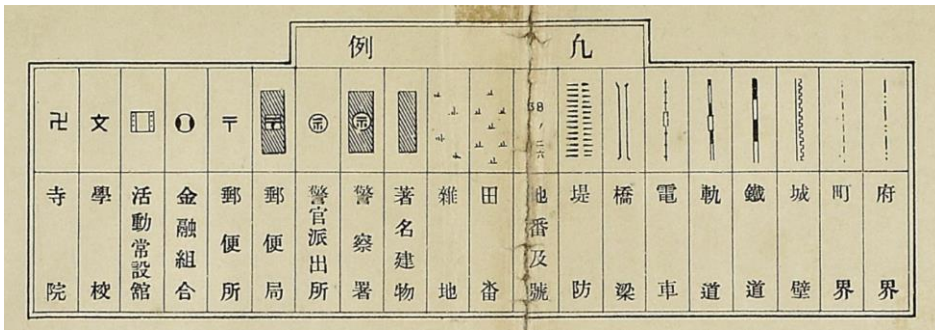 凡例
府界
町界
城壁
鐵道
軌道
電車
橋梁
堤防
ノ二六
地番及號
田畓
雜地
著名建物
警察署
警官派出所
〒
郵便局
〒
郵便所
金融組合
活動常設館
文
學校
卍
寺院